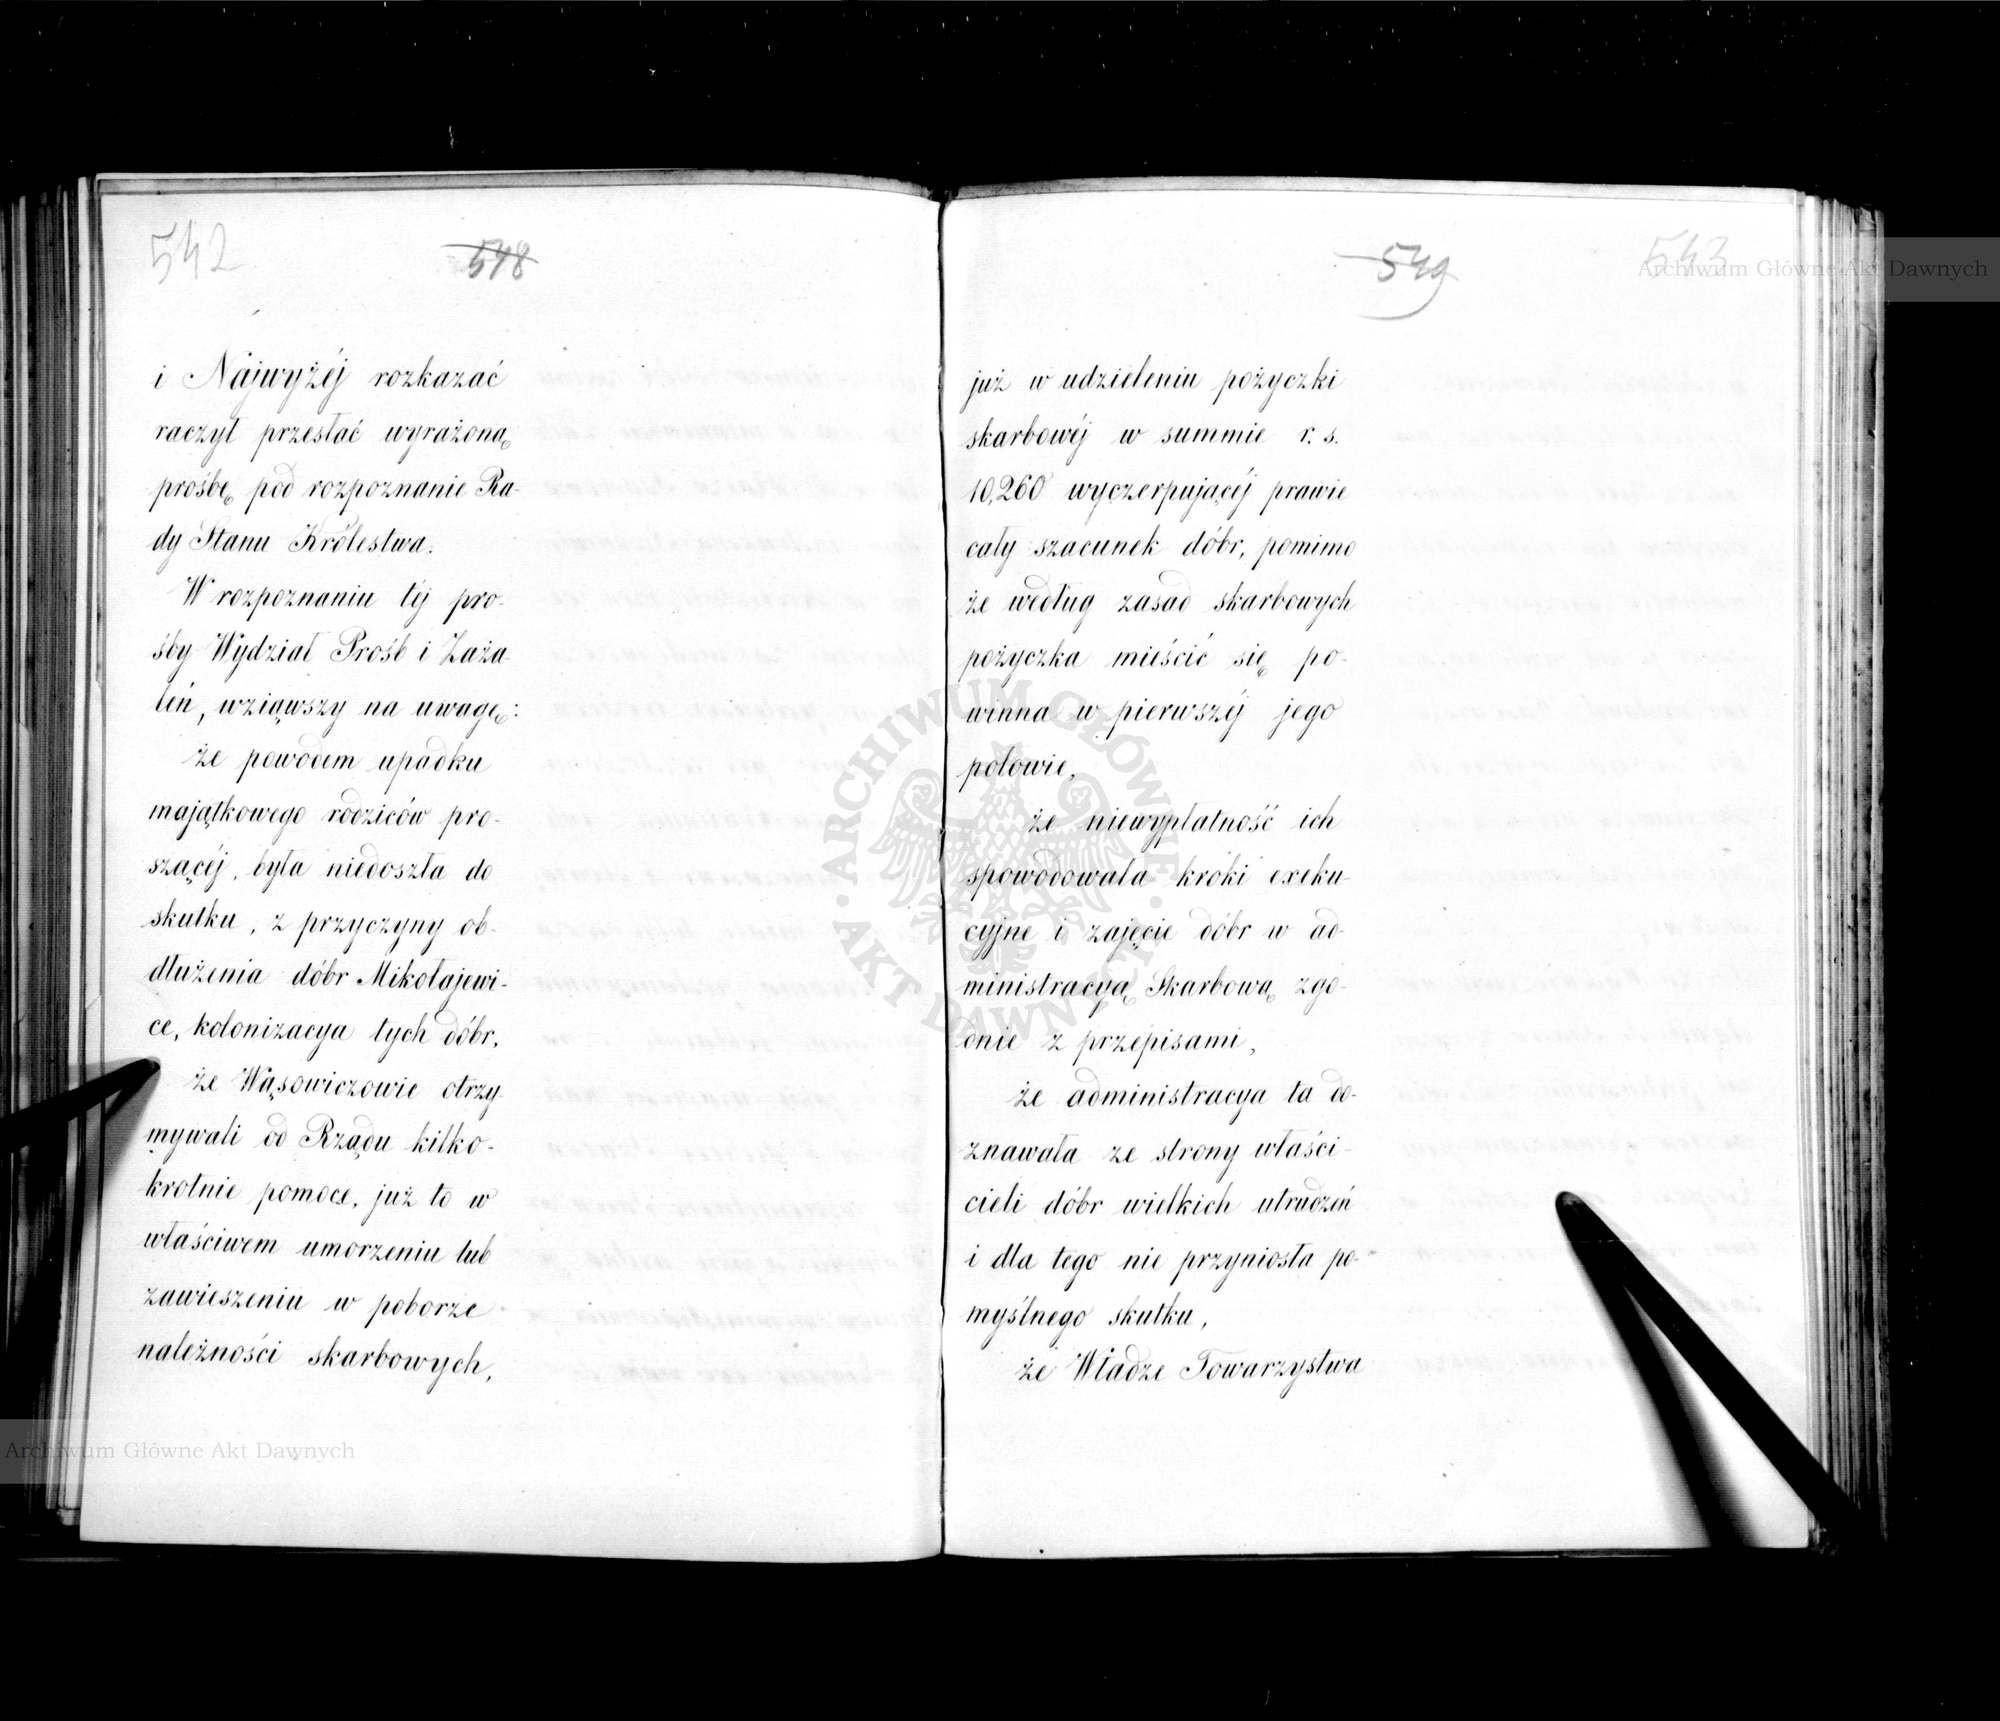 542
548
i Najwyżéj rozkazać
raczył przesłać wyrażoną
prośbę pod rozpoznanie Ra-
dy Stanu Królestwa.
W rozpoznaniu téj pro-
śby Wydział Prośb i Zaża-
leń, wziąwszy na uwagę:
że powodem upadku
majątkowego rodziców pro-
szącéj, była niedoszła do
skutku, z przyczyny ob-
dłużenia dóbr Mikołajewi-
ce, kolonizacya tych dóbr,
że Wąsowiczowie otrzy-
mywali od Rządu kilko-
krotnie pomoce, już to w
właściwem umorzeniu lub
zawieszeniu w poborze
należności skarbowych,
549
543
już w udzieleniu pożyczki
skarbowéj w summie r. s.
10,260 wyczerpującéj prawie
cały szacunek dóbr, pomimo
że według zasad skarbowych
pożyczka mieścić się po-
winna w pierwszéj jego
połowie,
że niewypłatność ich
spowodowała kroki exeku-
cyjne i zajęcie dóbr w ad-
ministracyą Skarbową zgo-
dnie z przepisami,
że administracya ta do-
znawała ze strony właści-
cieli dóbr wielkich utrudzeń
i dla tego nie przyniosła po-
myślnego skutku,
że Władze Towarzystwa
Archiwum Główne Akt Dawnych
ARCHIWUM GŁÓWNE
AKT DAWNYCH
Archiwum Główne Akt Dawnych